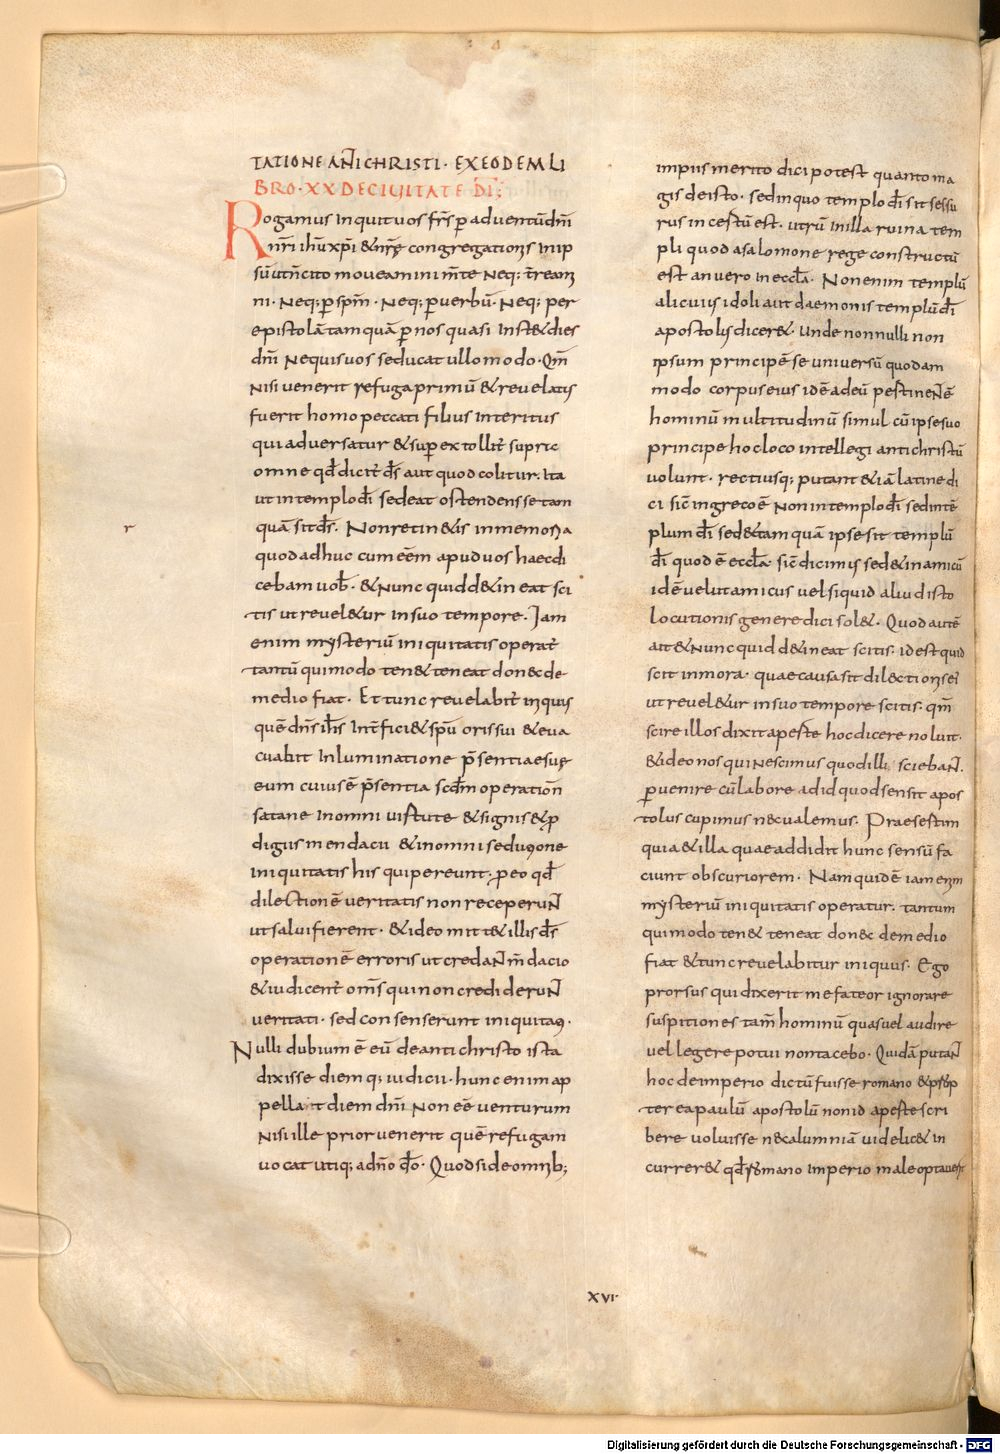 TATIONE AÑICHRISTI · EX EODEM LI
BRO · XX DE CIVITATE DĪ;
Rogamus inquit uos frs̄ p̄ aduentū dn̄i
nr̄i ihū xp̄i & nrę̄ congregationis in ip
sū ut n̄ cito moueamini m̄te neq; t̄ream
ni · neq; p̄ spm̄ · neq; p̄ uerbū · neq; per
epistolā tamquā p̄ nos quasi inst& dies
dn̄i ne quis uos seducat ullo modo · Qm̄
nisi uenerit refuga primū & reuelatus
fuerit homo peccati filius interitus
qui aduersatur & sup̄extollit̄ supric
omne qđ dicit̄ d̄s aut quod colitur · ita
ut in templo dī sedeat ostendens se tam
quā sit d̄s · Non retin&is in memoria
quod adhuc cum eēm apud uos haec di
cebam uob̄ · & nunc quid d&ineat sci
tis ut reuel&ur in suo tempore · Iam
enim mysteriū iniquitatis operat̄
tantū qui modo ten& teneat donec de
medio fiat · Et tunc reuelabit̄ iniquus
quē dn̄s ih̄s int̄fici& spū oris sui & eua
cuabit inluminatione p̄sentiae suę
eum cuius ē p̄sentia scdm̄ operation̄
satane in omni uirtute & signis & p̄
digiis mendacii & in omni seductione
iniquitatis his qui pereunt · p̄ eo qđ
dilectionē ueritatis non receperuN̄
ut salui fierent · & ideo mitt& illis d̄s
operationē erroris ut credaN̄ m̄dacio
& iudicent̄ oms̄ qui non credideruN̄
ueritati · sed consenserunt iniquitati ·
Nulli dubium ē eū de antichristo ista
dixisse diemq; iudicii · hunc enim ap
pellat diem dn̄i non eē uenturum
nisi ille prior uenerit quē refugam
uocat utiq; a dn̄o d̄o · Quod si de omnib;
impiis merito dici potest quanto ma
gis de isto · sed in quo templo dī sit sessu
rus incestū est · utrū in illa ruina tem
pli quod a salomone rege constructū
est an uero in eccl̄a · Non enim templū
alicuius idoli aut daemonis templū dī
apostolus dicer& · Unde nonnulli non
ipsum principē se uniuersū quodam
modo corpus eius idē ad eū pestineN̄ē
hominū multitudinū simul cū ipse suo
principe hoc loco intellegi antichristū
uolunt · rectiusq; putant & iā latine di
ci sic̄ in greco ē non in templo dī sed in tē
plum dī sed&tamquā ipse sit templū
dī quod ē eccl̄a · sic̄ dicimus sed& in amicū
id ē uelut amicus uel si quid aliud isto
locutionis genere dici sol& · Quod autē
ait & nunc quid d&ineat scitis · id est quid
scit in mora · quae causa sit dilectionis ei
ut reuel&ur in suo tempore scitis · qm̄
scire illos dixit apeste hoc dicere noluit ·
& ideo nos qui nescimus quod illi sciebaN̄ ·
p̄uenire cū labore ad id quod sensit apos
tolus cupimus nec ualemus · Praesestim
quia & illa quae addidit hunc sensū fa
ciunt obscuriorem · Nam quid ē iam enim
mysteriū iniquitatis operatur · tantum
qui modo ten& teneat donec de medio
fiat & tunc reuelabitur iniquus · Ego
prorsus qui dixerit me fateor ignorare
suspitiones tam̄ hominū quas uel audire
uel legere potui non tacebo · Quidā putaN̄
hoc de imperio dictū fuisse romano & p̄p
terea paulū apostolū non id apeste scri
bere uoluisse nec alumniā uidelic& in
currer& qđ romano imperio male optauerit
XVI·
Digitalisierung gefördert durch die Deutsche Forschungsgemeinschaft - DFG